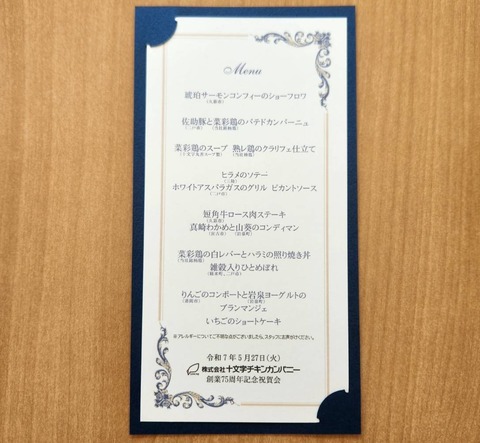 Menu
琥珀サーモンコンフィーのショーフロワ
(久慈市)
佐助豚と菜彩鶏のパテドカンパーニュ
(二戸市) (当社銘柄鶏)
菜彩鶏のスープ 熟レ鶏のクラリフェ仕立て
(十文字丸鶏スープ製) (当社種鶏)
ヒラメのソテー
(三陸)
ホワイトアスパラガスのグリル ピカントソース
(二戸市)
短角牛ロース肉ステーキ
真崎わかめと山葵のコンディマン
(宮古市) (岩泉町)
菜彩鶏の白レバーとハラミの照り焼き丼
(当社銘柄鶏)
雑穀入りひとめぼれ
りんごのコンポートと岩泉ヨーグルトの
(盛岡市) (岩泉町)
ブランマンジェ
いちごのショートケーキ
※アレルギーについてご不明な点がございましたら、スタッフにお声がけください。
令和7年5月27日(火)
株式会社十文字チキンカンパニー
創業75周年記念祝賀会